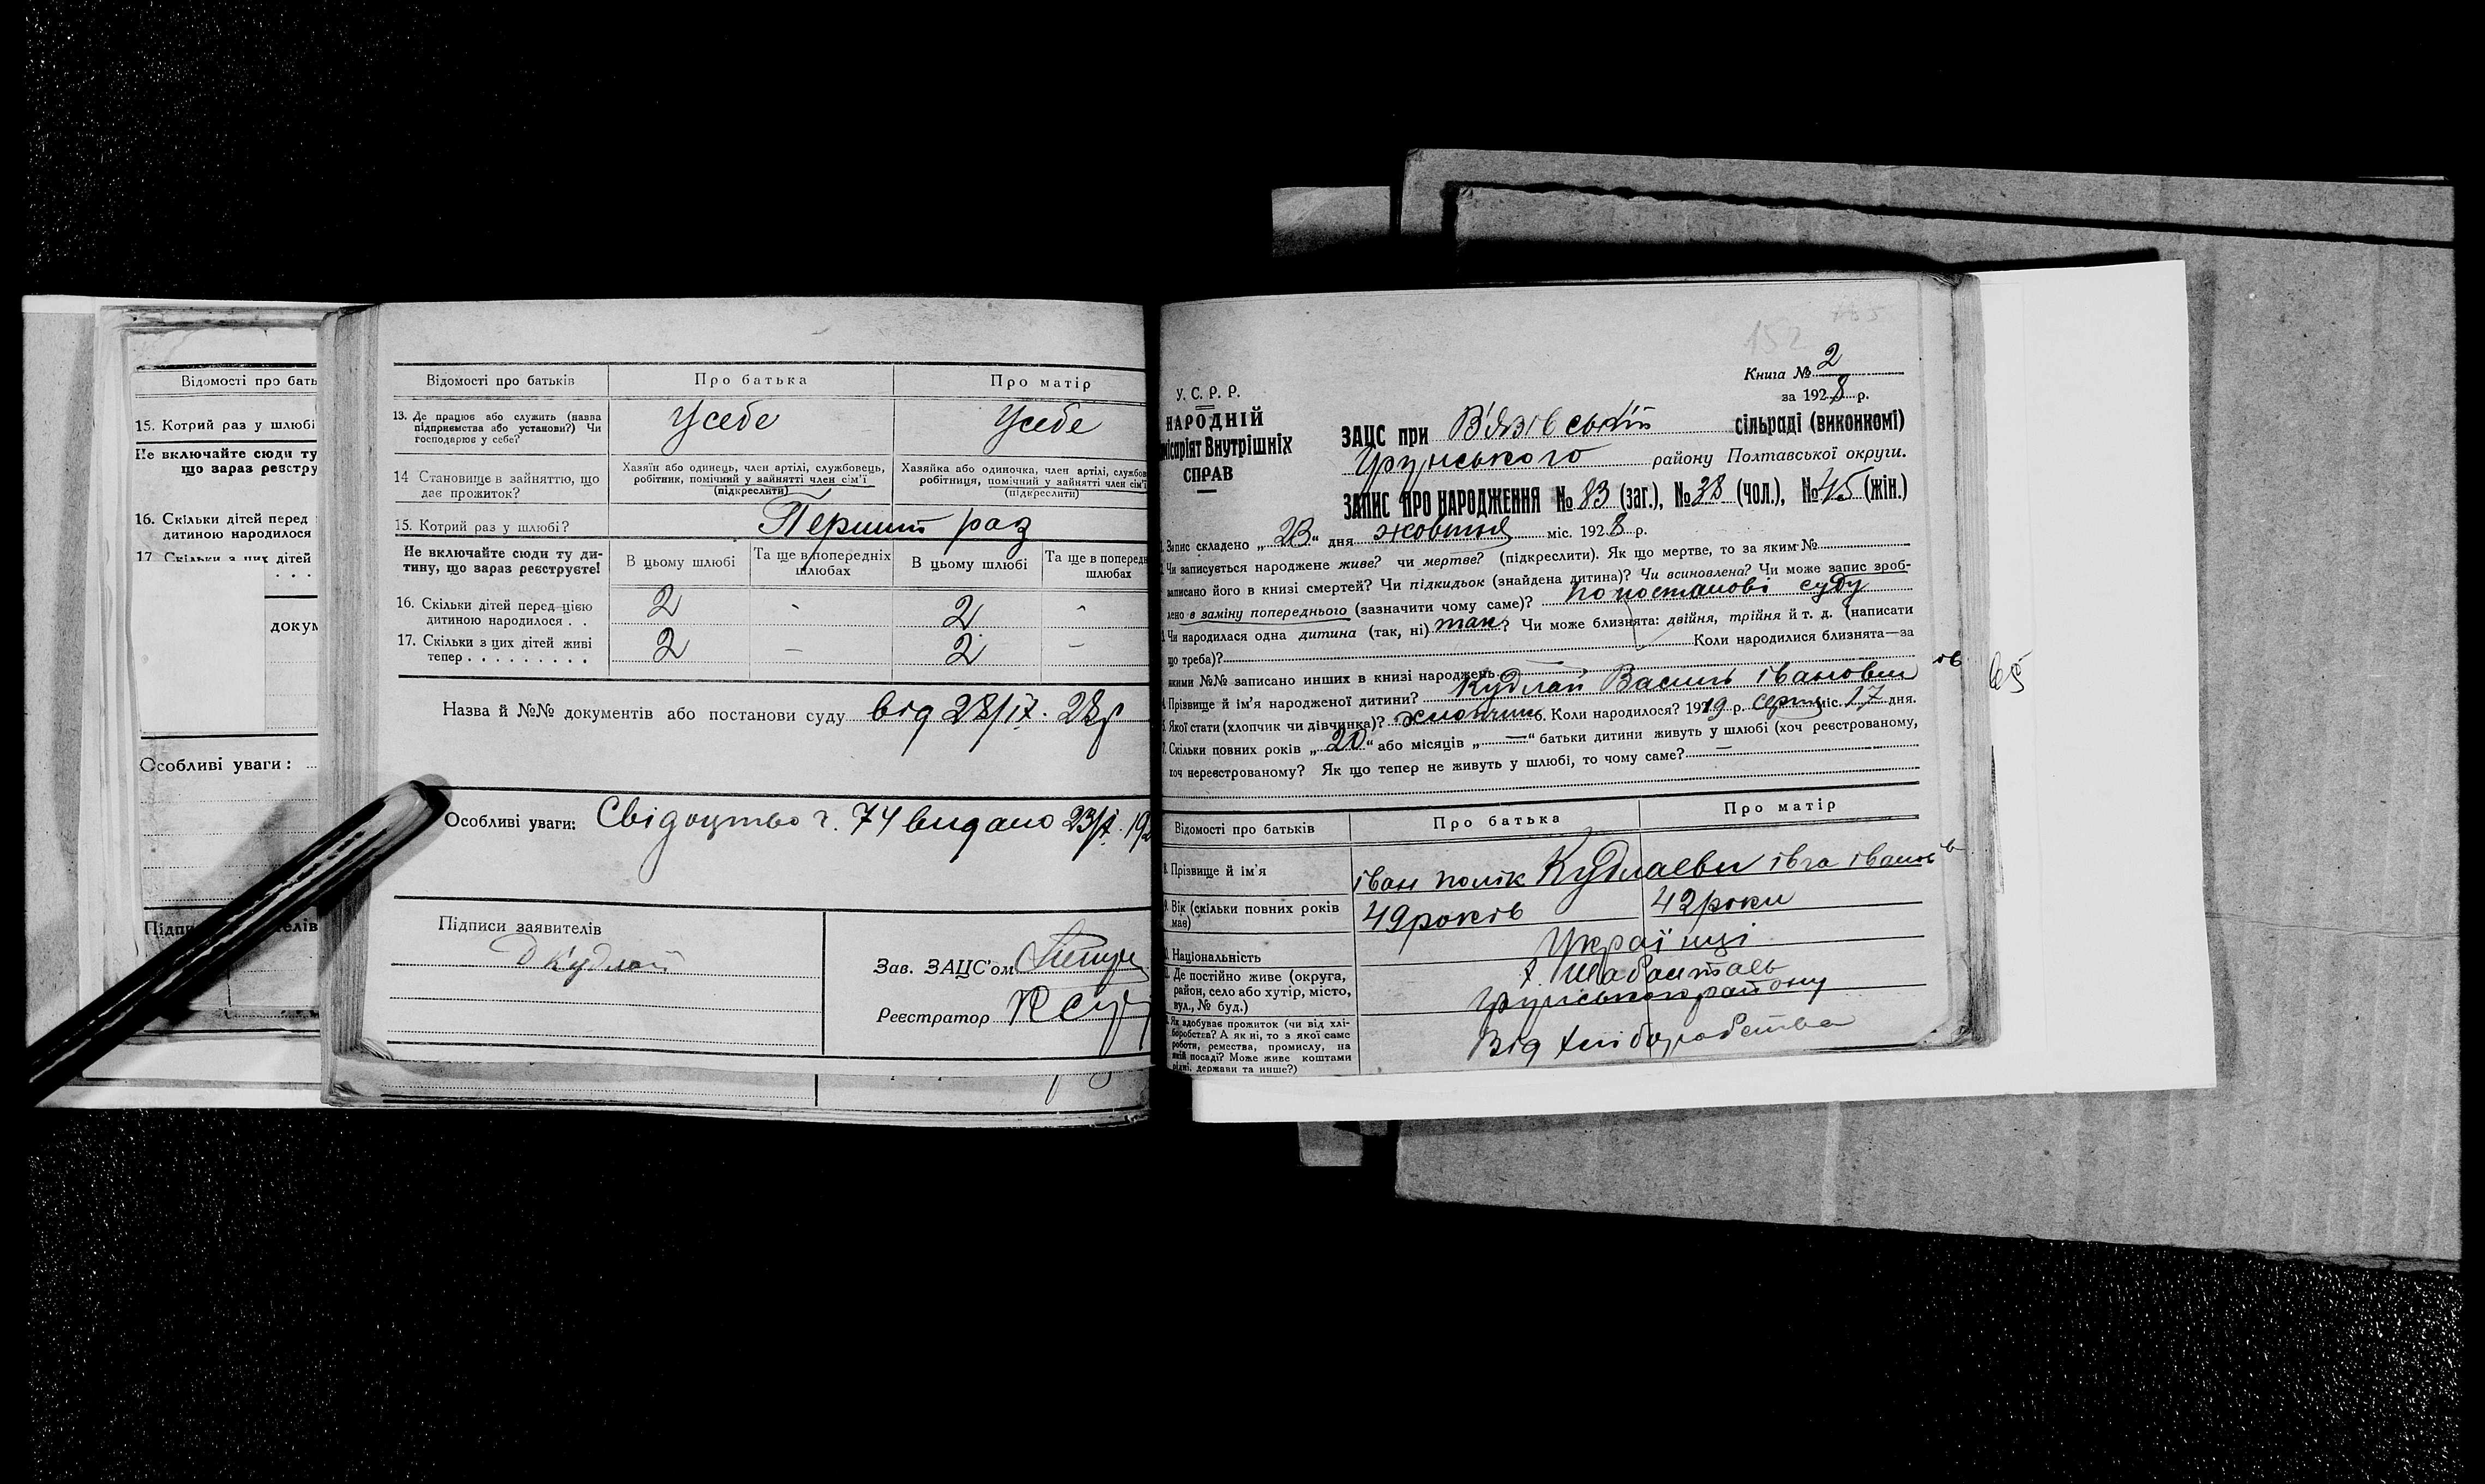 Відомості про бать
15. Котрий раз у шлюбі
Не включайте сюди ту
що зараз реєстру
16. Скільки дітей перед
дитиною народилося
17. Скільки з цих дітей
докум
Особливі уваги:
Відомості про батьків
Про батька
Про матір
13. Де працює або служить (назва підприємства або установи?) Чи господарює у себе?
Усебе
Усебе
14 Становище в зайняттю, що дає прожиток?
Хазяїн або одинець, член артілі, службовець, робітник, помічний у зайнятті член сім'ї (підкреслити)
Хазяйка або одиночка, член артілі, службов робітниця, помічний у зайнятті член сім'ї (підкреслити)
15. Котрий раз у шлюбі?
Перший раз
Не включайте сюди ту дитину, що зараз реєструєте!
В цьому шлюбі
Та ще в попередніх шлюбах
В цьому шлюбі
Та ще в поперед шлюбах
16. Скільки дітей перед цією дитиною народилося . .
2 - 2 -
17. Скільки з цих дітей живі тепер . . . . . . . . .
2 — 2 —
Назва й №№ документів або постанови суду від 28/IX. 28р
Особливі уваги: Свідоцтво ч. 74 видано 23/X. 192
Підписи заявителів
Д Кудлай
Зав. ЗАЦС'ом
Реєстратор
152
Книга № 2
за 1928 р.
У. С. Р. Р.
НАРОДНІЙ
місаріят Внутрішніх
СПРАВ
ЗАЦС при В'язівській сільраді (виконкомі)
Грунського району Полтавської округи.
ЗАПИС ПРО НАРОДЖЕННЯ № 83 (заг.), № 38 (чол.), № 45 (жін.)
1. Запис складено „23" дня жовтня міс. 1928 р.
Чи записується народжене живе? чи мертве? (підкреслити). Як що мертве, то за яким №
записано його в книзі смертей? Чи підкидьок (знайдена дитина)? Чи всиновлена? Чи може запис зроб-
лено в заміну попереднього (зазначити чому саме)? по постанові суду
Чи народилася одна дитина (так, ні) так? Чи може близнята: двійня, трійня й т. д. (написати
що треба)? Коли народилися близнята—за
якими №№ записано инших в книзі народжень
Прізвище й ім'я народженої дитини? Кудлай Василь Іванович
Якої стати (хлопчик чи дівчинка)? хлопчик 6. Коли народилося? 1919 р. серпня міс. 17 дня.
7. Скільки повних років „20" або місяців „—" батьки дитини живуть у шлюбі (хоч реєстрованому,
хоч нереєстрованому? Як що тепер не живуть у шлюбі, то чому саме? —
Відомості про батьків
Про батька
Про матір
8. Прізвище й ім'я
Іван Кудлаеви Івга
9. Вік (скільки повних років має)
49 років
42 роки
Національність
Українці
Де постійно живе (округа, район, село або хутір, місто, вул., № буд.)
Грунського району
Як здобуває прожиток (чи від хліборобства? А як ні, то з якої саме роботи, ремества, промислу, на якій посаді? Може живе коштами рідні, держави та инше?)
Від хліборобства